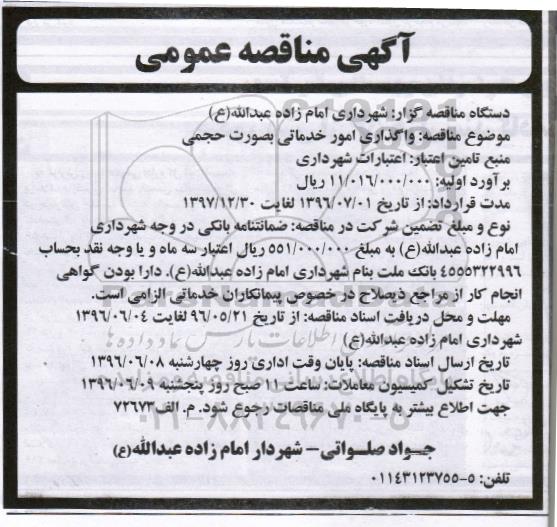 آگهی مناقصه عمومی
دستگاه مناقصه گزار: شهرداری امام زاده عبدالله(ع)
موضوع مناقصه: واگذاری امور خدماتی بصورت حجمی
منبع تامین اعتبار: اعتبارات شهرداری
برآورد اولیه: ۱۱/۰۱۶/۰۰۰/۰۰۰ ریال
مدت قرارداد: از تاریخ ۱۳۹۶/۰۷/۰۱ لغایت ۱۳۹۷/۱۲/۳۰
نوع و مبلغ تضمین شرکت در مناقصه: ضمانتنامه بانکی در وجه شهرداری
امام زاده عبدالله(ع) به مبلغ ۵۵۱/۰۰۰/۰۰۰ ریال اعتبار سه ماه و یا وجه نقد بحساب
۴۵۵۵۳۲۲۹۹۶ بانک ملت بنام شهرداری امام زاده عبدالله(ع). دارا بودن گواهی
انجام کار از مراجع ذیصلاح در خصوص پیمانکاران خدماتی الزامی است.
مهلت و محل دریافت اسناد مناقصه: از تاریخ ۹۶/۰۵/۲۱ لغایت ۱۳۹۶/۰۶/۰۴
شهرداری امام زاده عبدالله(ع)
تاریخ ارسال اسناد مناقصه: پایان وقت اداری روز چهارشنبه ۱۳۹۶/۰۶/۰۸
تاریخ تشکیل کمیسیون معاملات: ساعت ۱۱ صبح روز پنجشنبه ۱۳۹۶/۰۶/۰۹
جهت اطلاع بیشتر به پایگاه ملی مناقصات رجوع شود. م. الف۷۲۶۷۳
۰۲۱-۸۸۳۴۹۶۷۰-۵
جواد صلواتی- شهردار امام زاده عبدالله(ع)
تلفن: ۵-۰۱۱۴۳۱۲۳۷۵۵